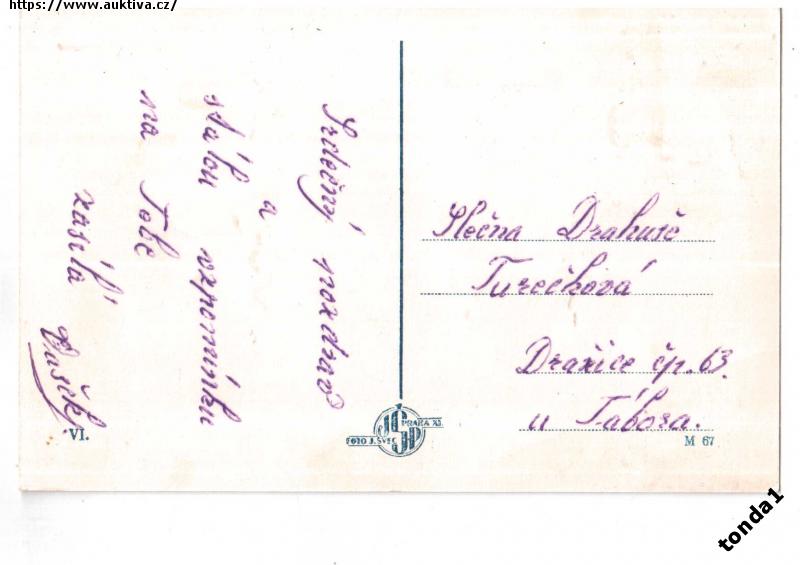 https://www.auktiva.cz/
Srdečný pozdrav
a
stálou vzpomínku
na Tebe
zasílá
Slečna Drahuše
Turečková
Dražice čp. 63.
u Tábora.
FOTO J. ŠVEC
JŠP
PRAHA XI.
VI.
M 67
tonda1